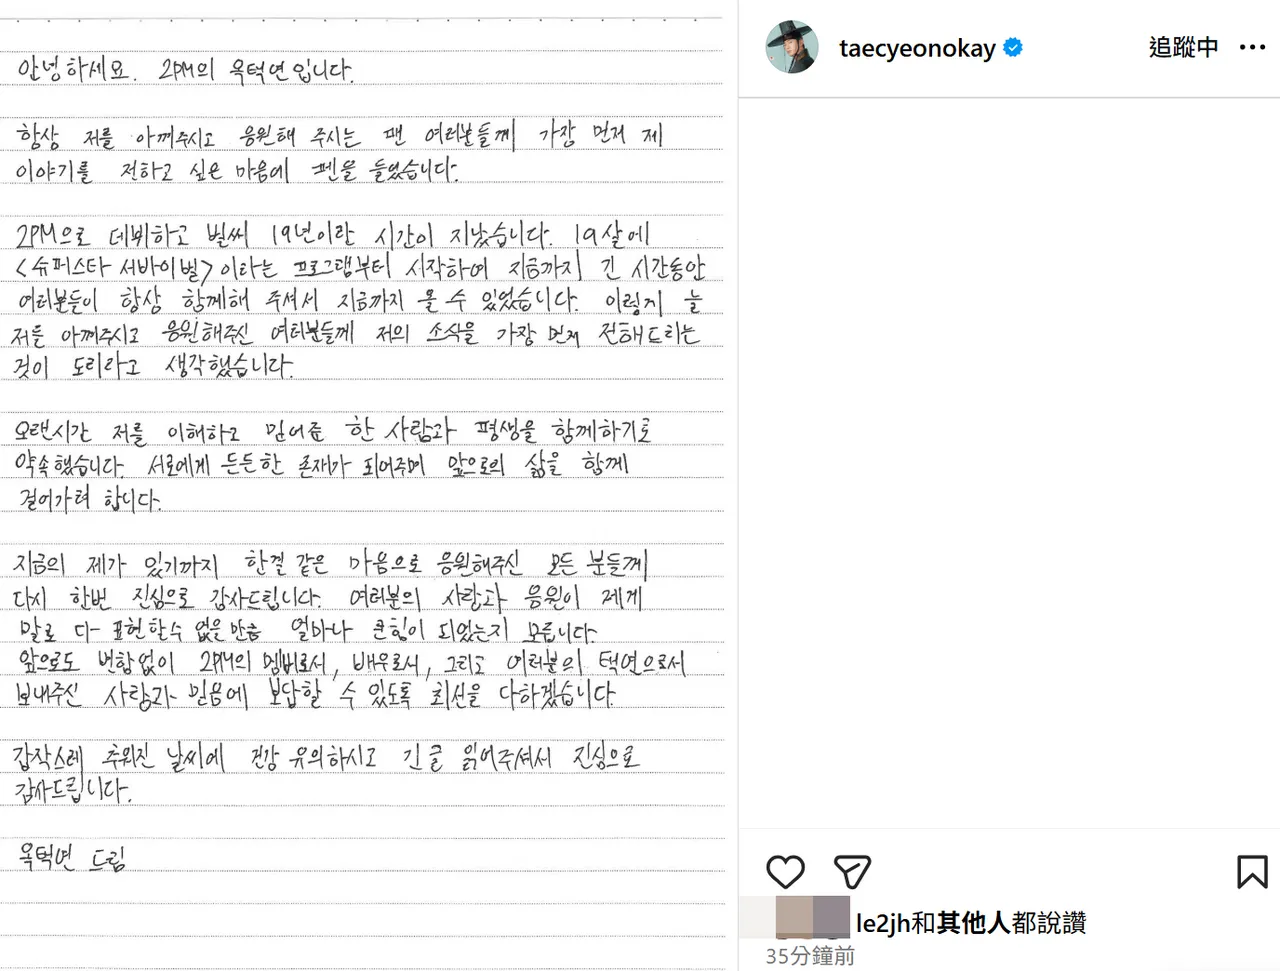 안녕하세요. 2PM의 옥택연입니다.
항상 저를 아껴주시고 응원해 주시는 팬 여러분들께 가장 먼저 제
이야기를 전하고 싶은 마음에 펜을 들었습니다.
2PM으로 데뷔하고 벌써 19년이란 시간이 지났습니다. 19살에
<슈퍼스타 서바이벌> 이라는 프로그램부터 시작하여 지금까지 긴 시간동안
여러분들이 항상 함께해 주셔서 지금까지 올 수 있었습니다. 이렇게 늘
저를 아껴주시고 응원해주신 여러분들께 저의 소식을 가장 먼저 전해드리는
것이 도리라고 생각했습니다.
오랜시간 저를 이해하고 믿어준 한 사람과 평생을 함께하기로
약속했습니다. 서로에게 든든한 존재가 되어주며 앞으로의 삶을 함께
걸어가려 합니다.
지금의 제가 있기까지 한결 같은 마음으로 응원해주신 모든 분들께
다시 한번 진심으로 감사드립니다. 여러분의 사랑과 응원이 제게
말로 다 표현할수 없을만큼 얼마나 큰힘이 되었는지 모릅니다.
앞으로도 변함없이 2PM의 멤버로서, 배우로서, 그리고 여러분의 택연으로서
보내주신 사랑과 믿음에 보답할 수 있도록 최선을 다하겠습니다.
갑작스레 추워진 날씨에 건강 유의하시고 긴 글 읽어주셔서 진심으로
감사드립니다.
옥택연 드림
taecyeonokay
追蹤中
le2jh和其他人都說讚
35分鐘前